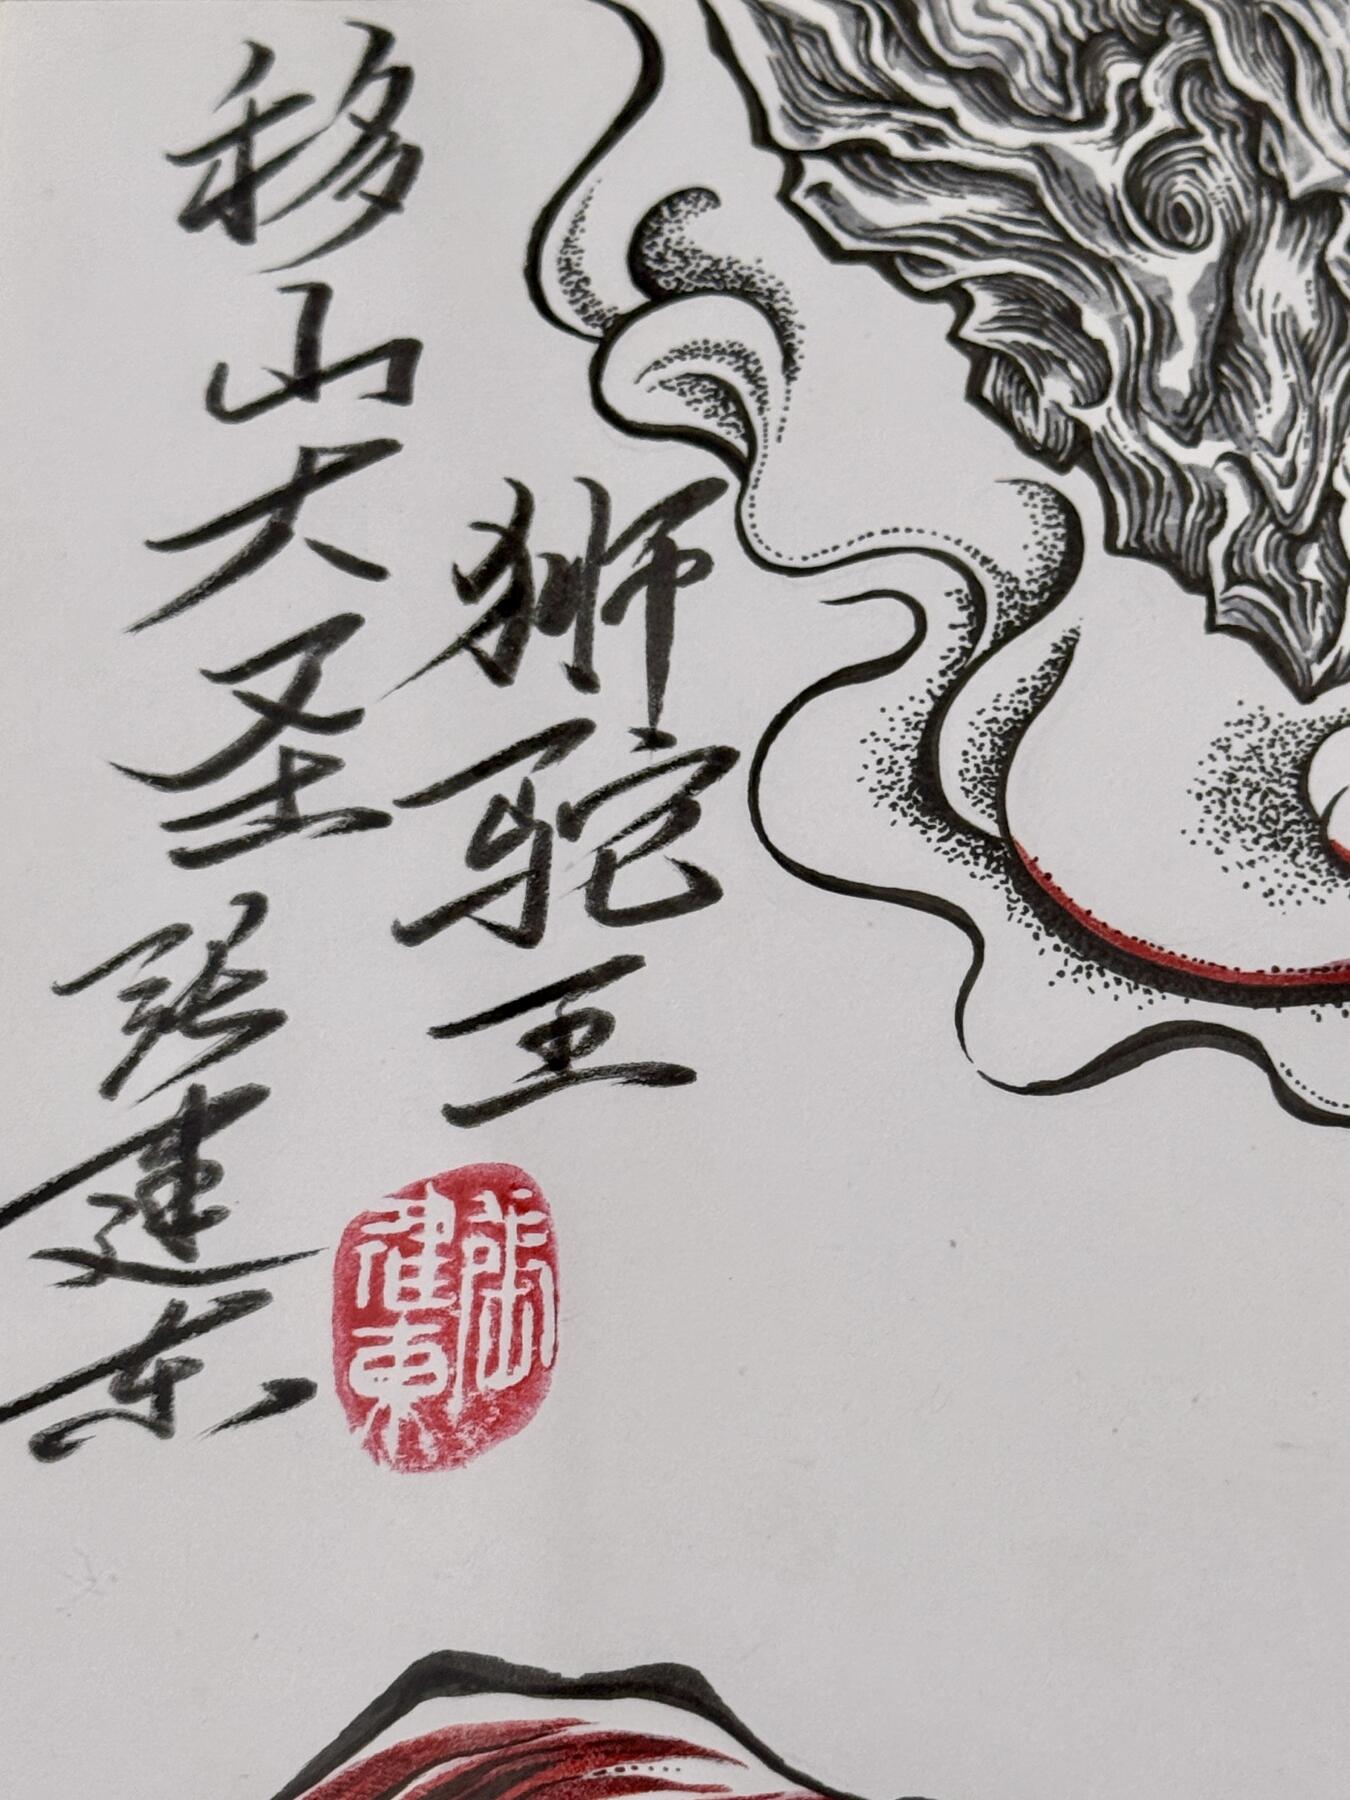 狮驼王
移山大圣 张建东
張建東